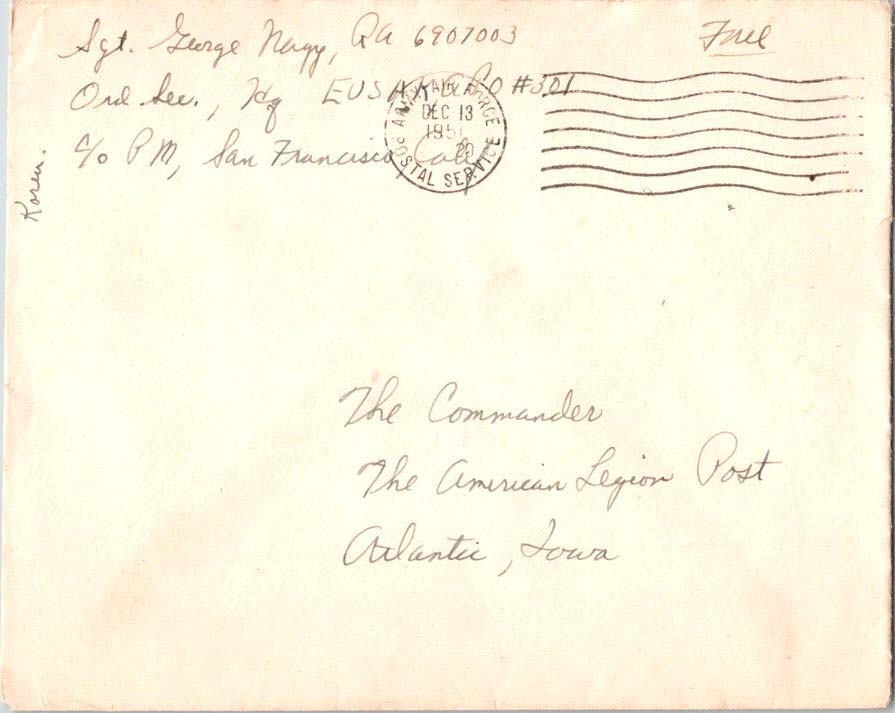 Sgt. George Nagy, RA 6907003
Free
Ord. Sec., Hq EUSAK, APO #301
c/o PM, San Francisco Calif
Korea.
ARMY-AIR FORCE
DEC 13
195
POSTAL SERVICE
The Commander
The American Legion Post
Atlantic, Iowa